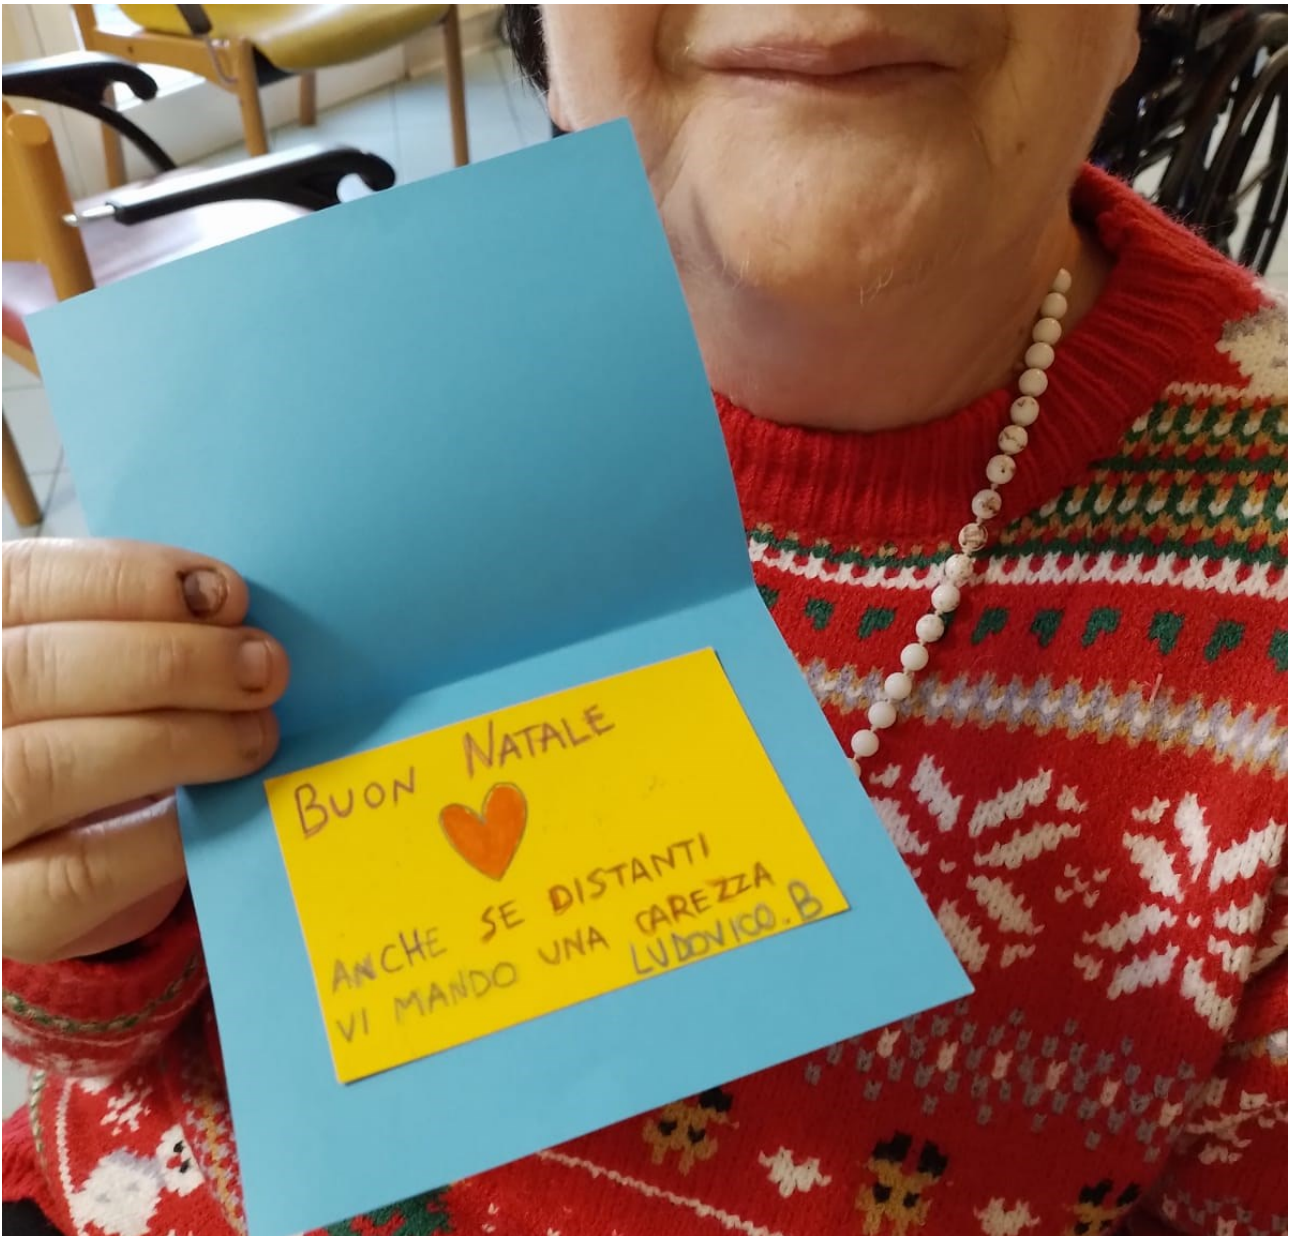 BUON NATALE
ANCHE SE DISTANTI
VI MANDO UNA CAREZZA
LUDOVICO.B